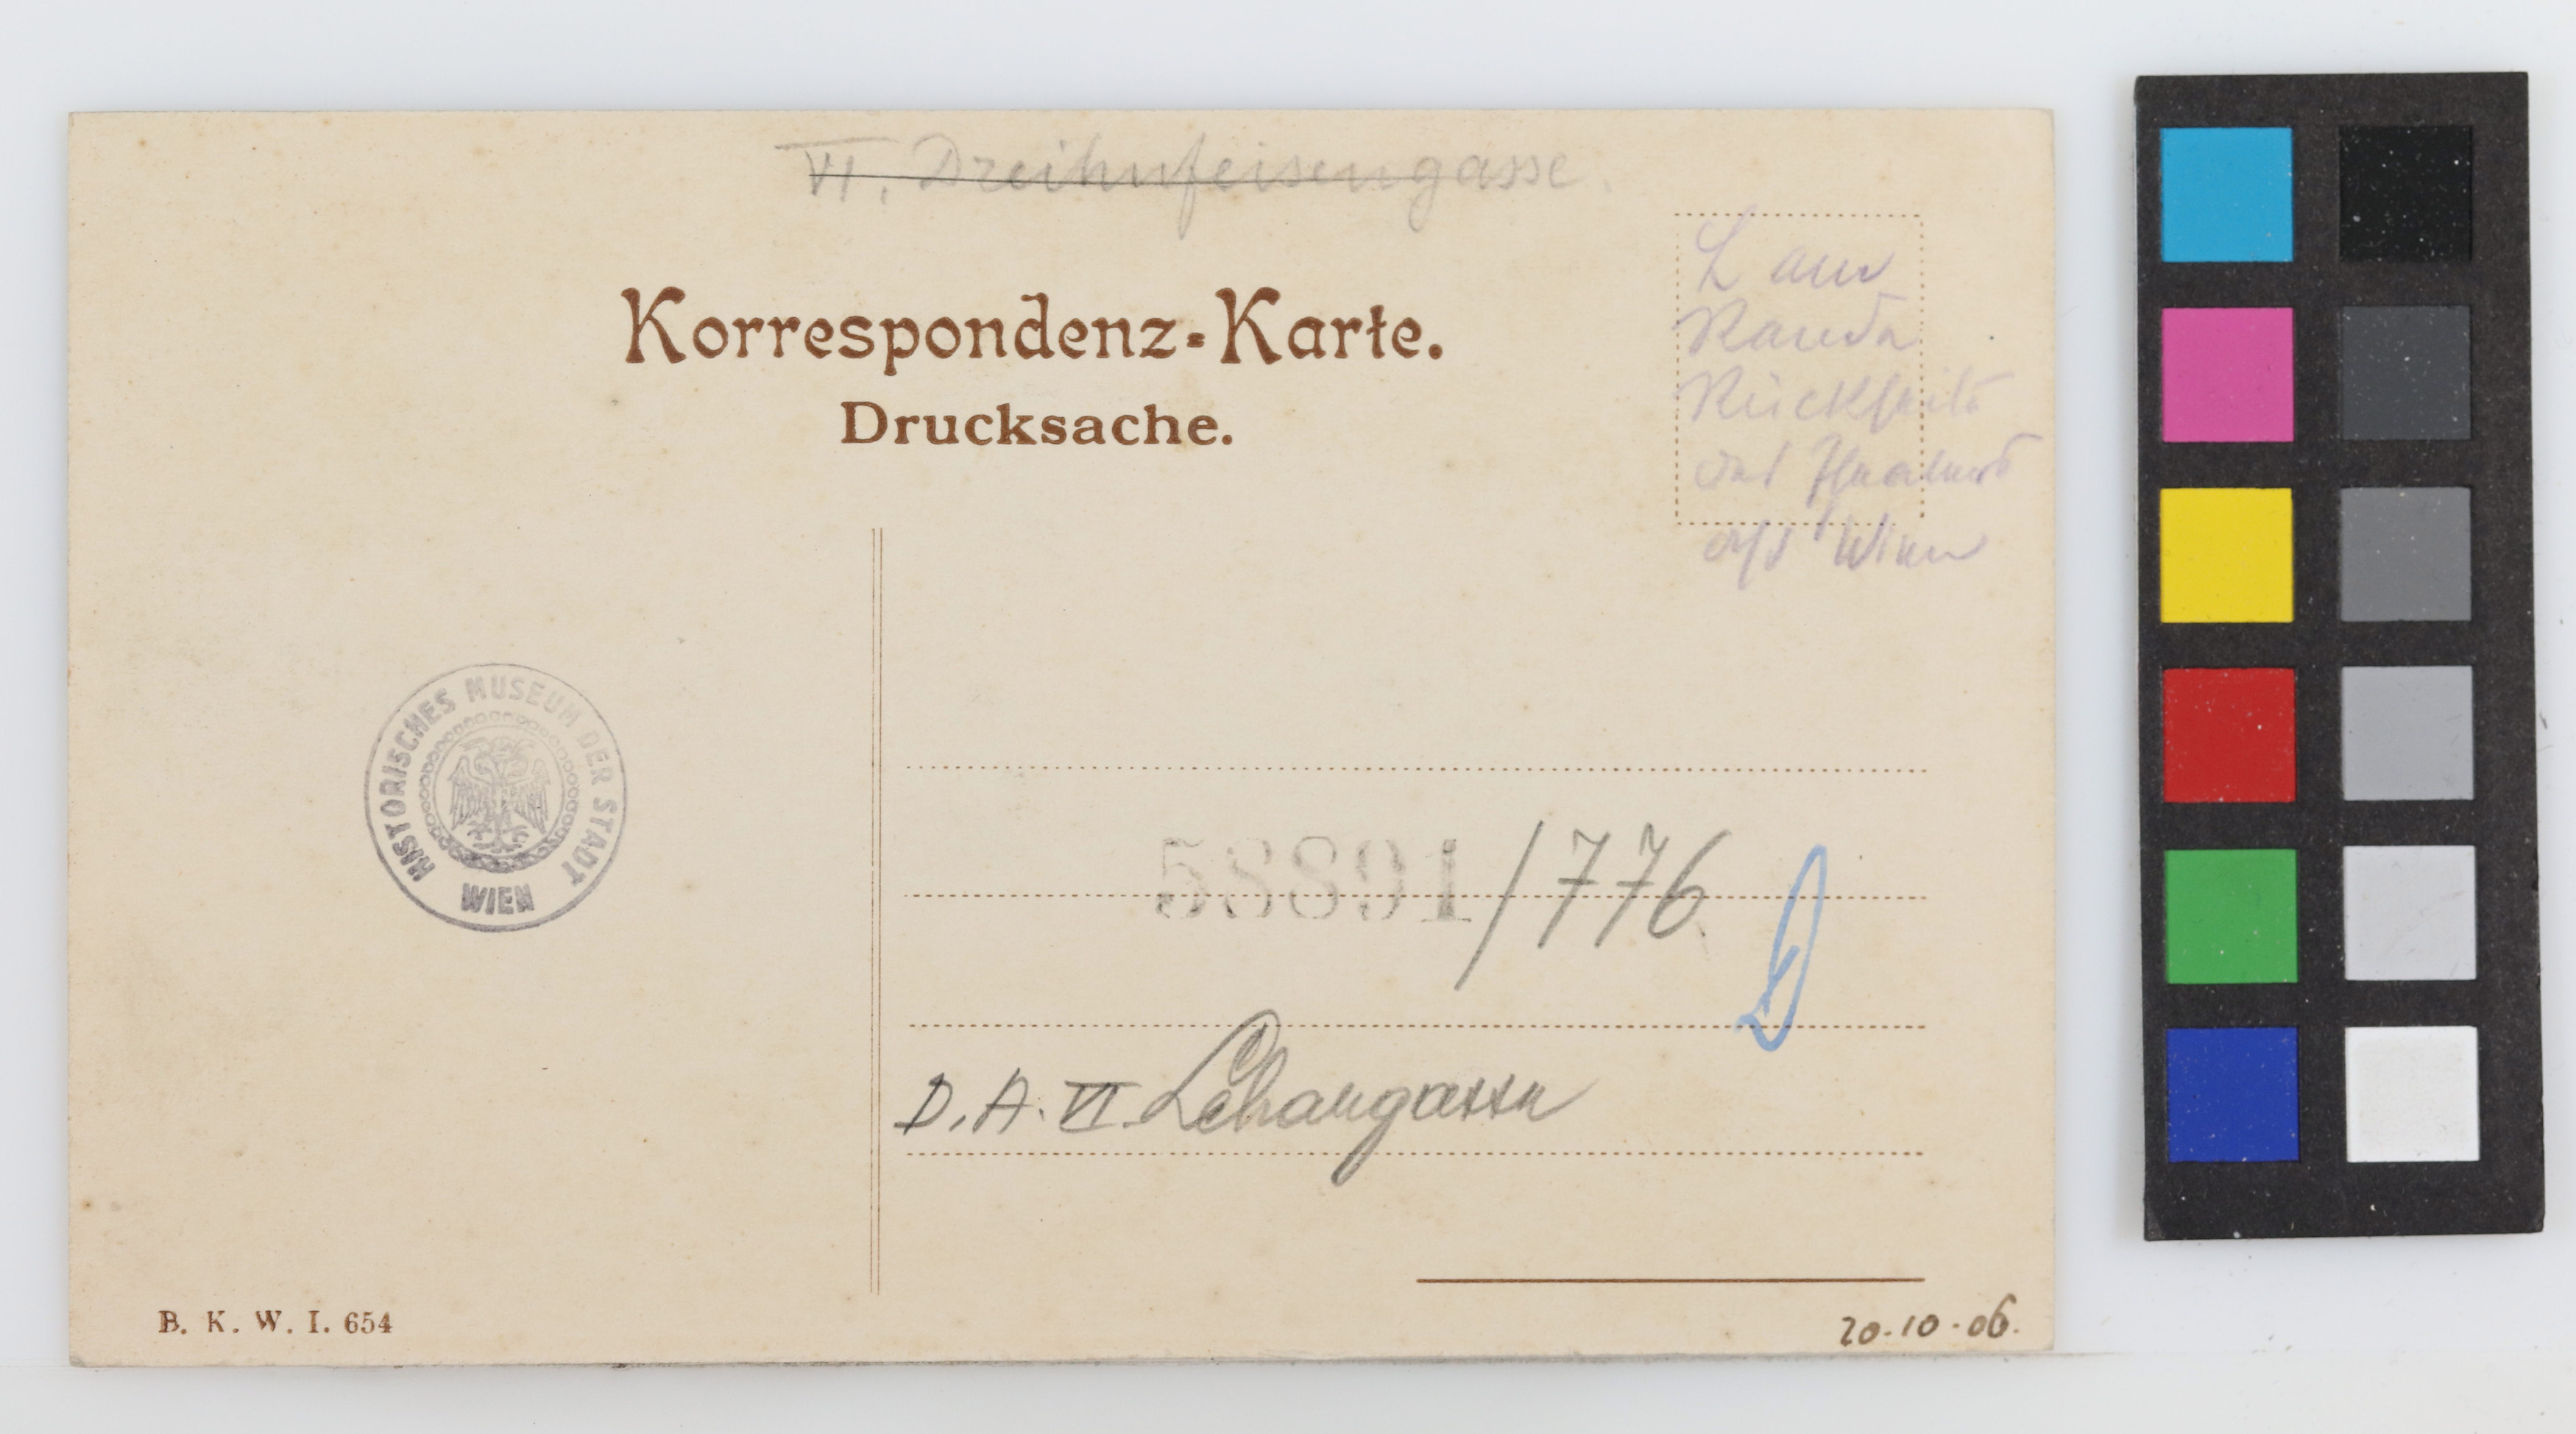 VI. Dreihufeisengasse.
Korrespondenz-Karte.
Drucksache.
Rückseite
Wien
HISTORISCHES MUSEUM DER STADT
WIEN
58891/776
D. A. VI. Lehargasse
B. K. W. I. 654
20.10.06.